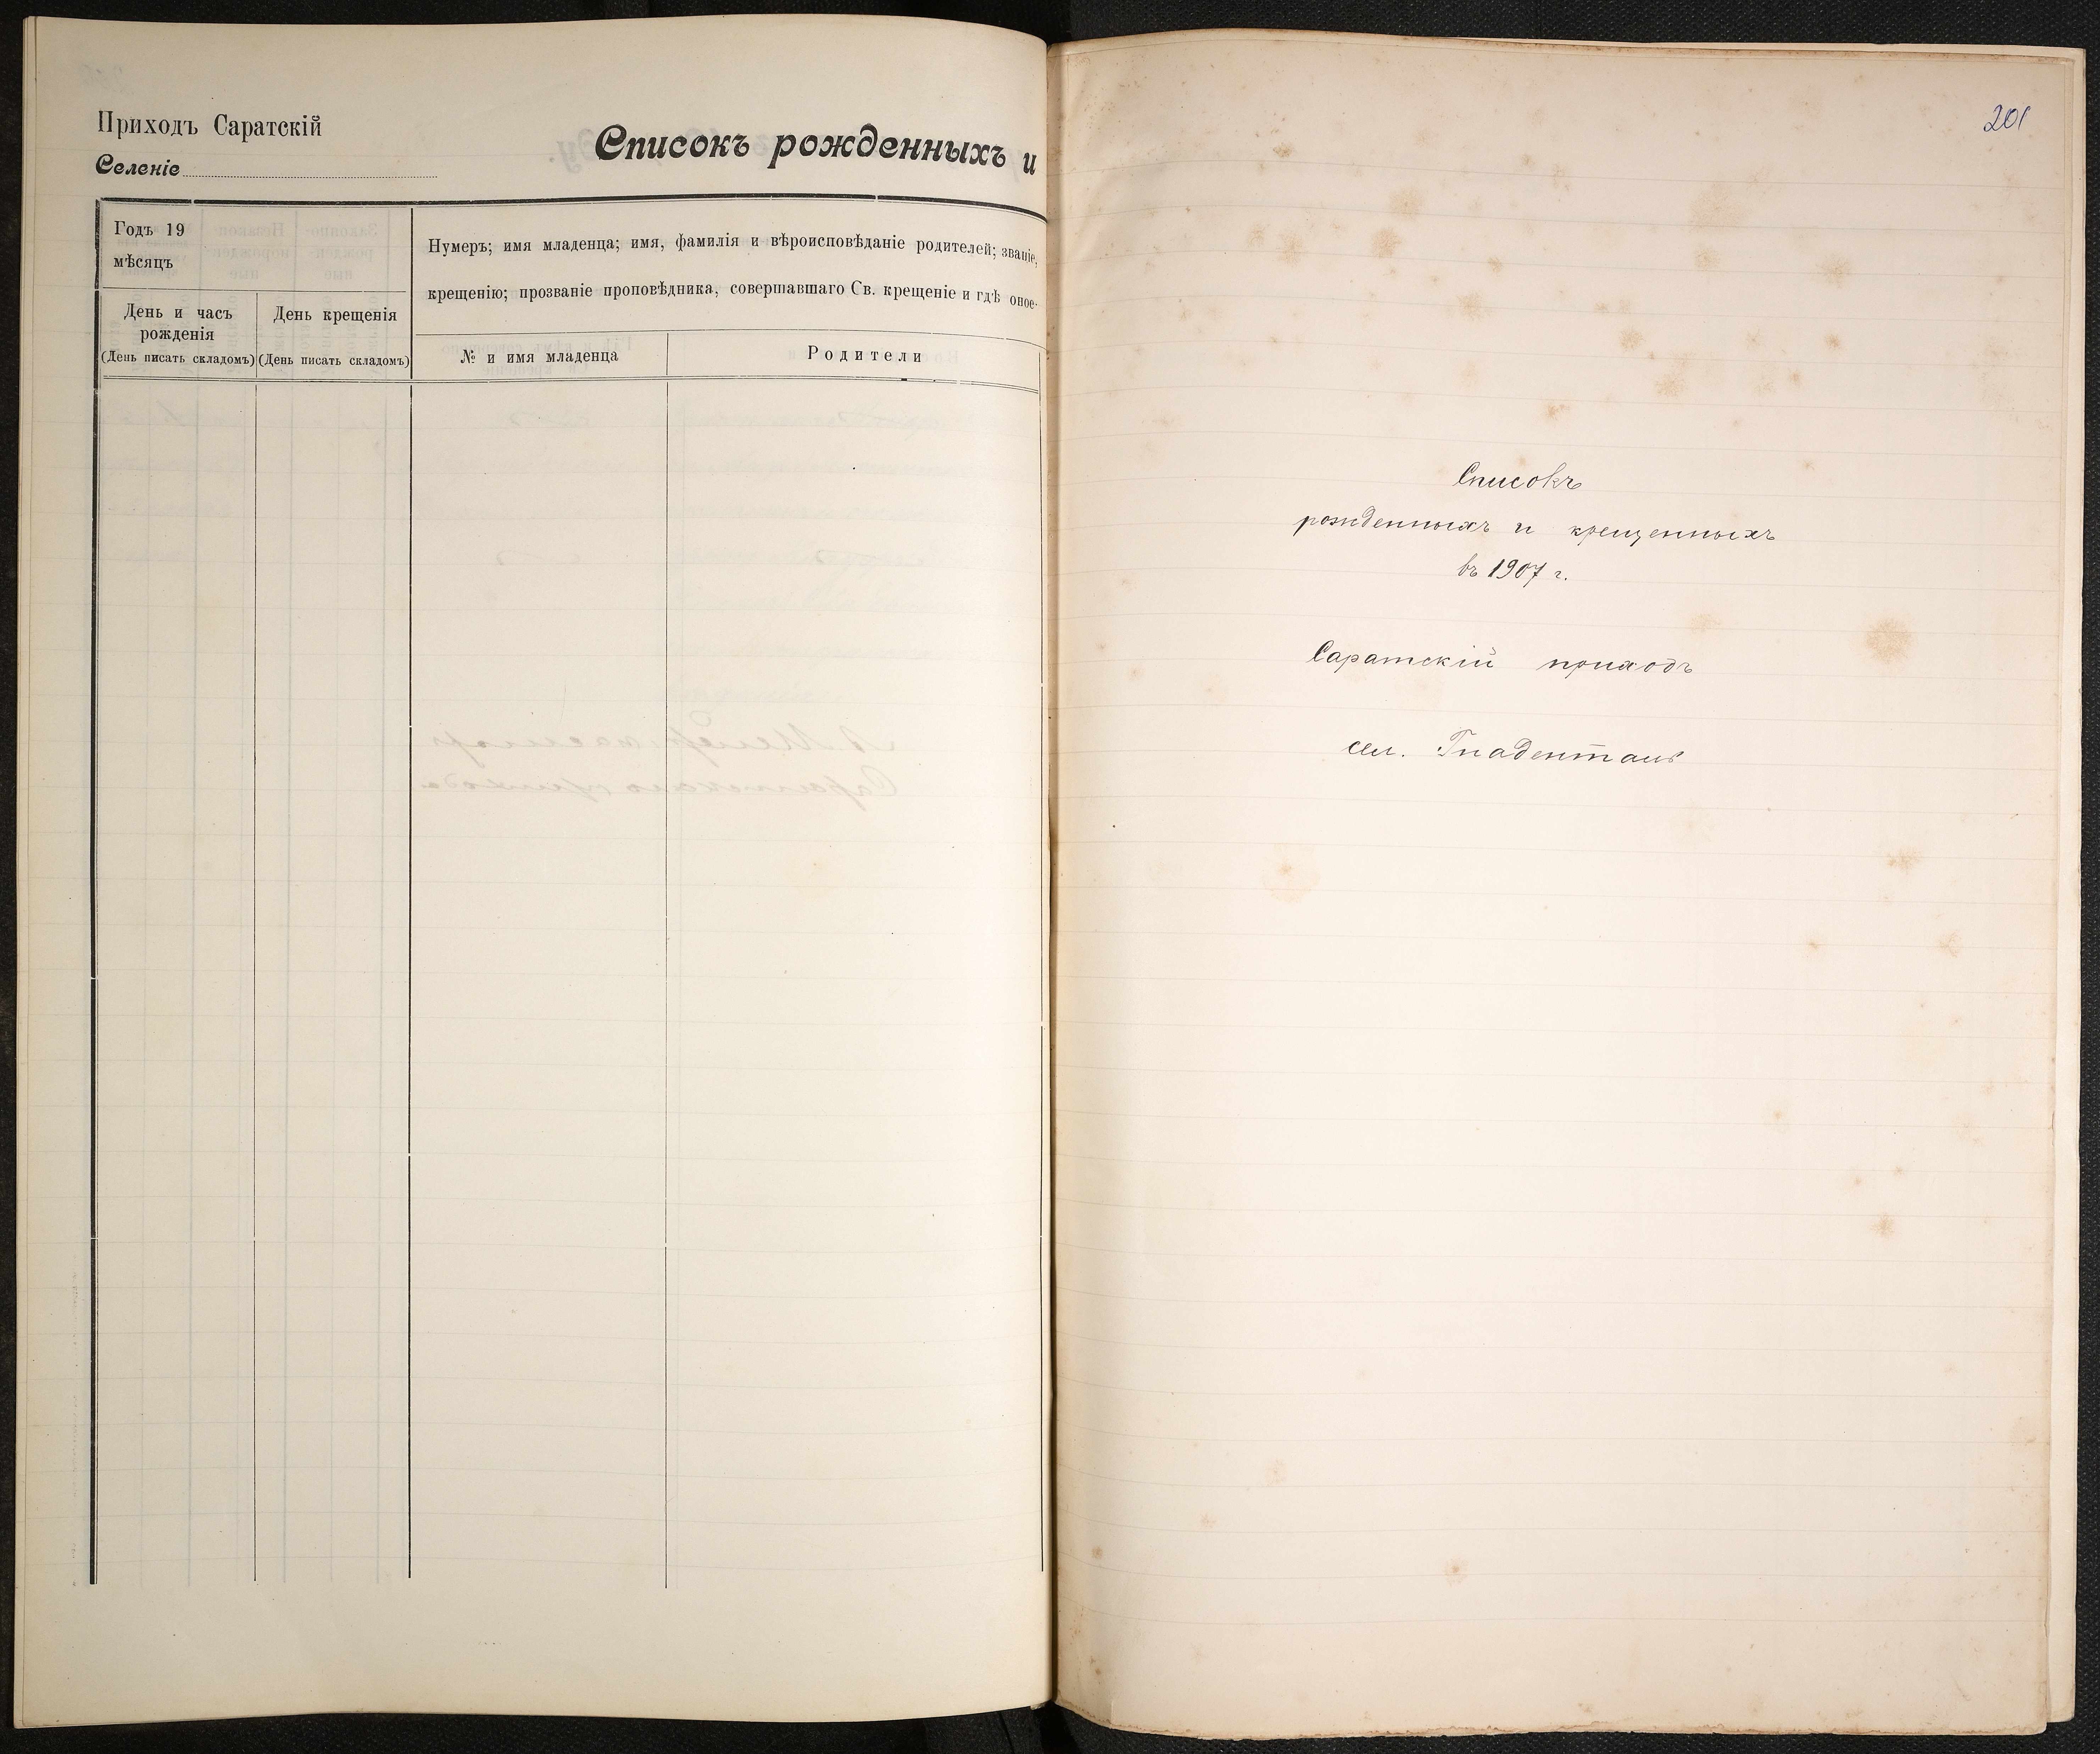 Приходъ Саратскій
Селеніе
Списокъ рожденныхъ и
Годъ 19
мѣсяцъ
День и часъ
рожденія
(День писать складомъ)
День крещенія
(День писать складомъ)
Нумеръ; имя младенца; имя, фамилія и вѣроисповѣданіе родителей; званіе,
крещенію; прозваніе проповѣдника, совершавшаго Св. крещеніе и гдѣ оное
№ и имя младенца
Родители
201
Списокъ
рожденныхъ и крещенныхъ
въ 1907 г.
Саратскій приходъ
сел. Гнаденталь